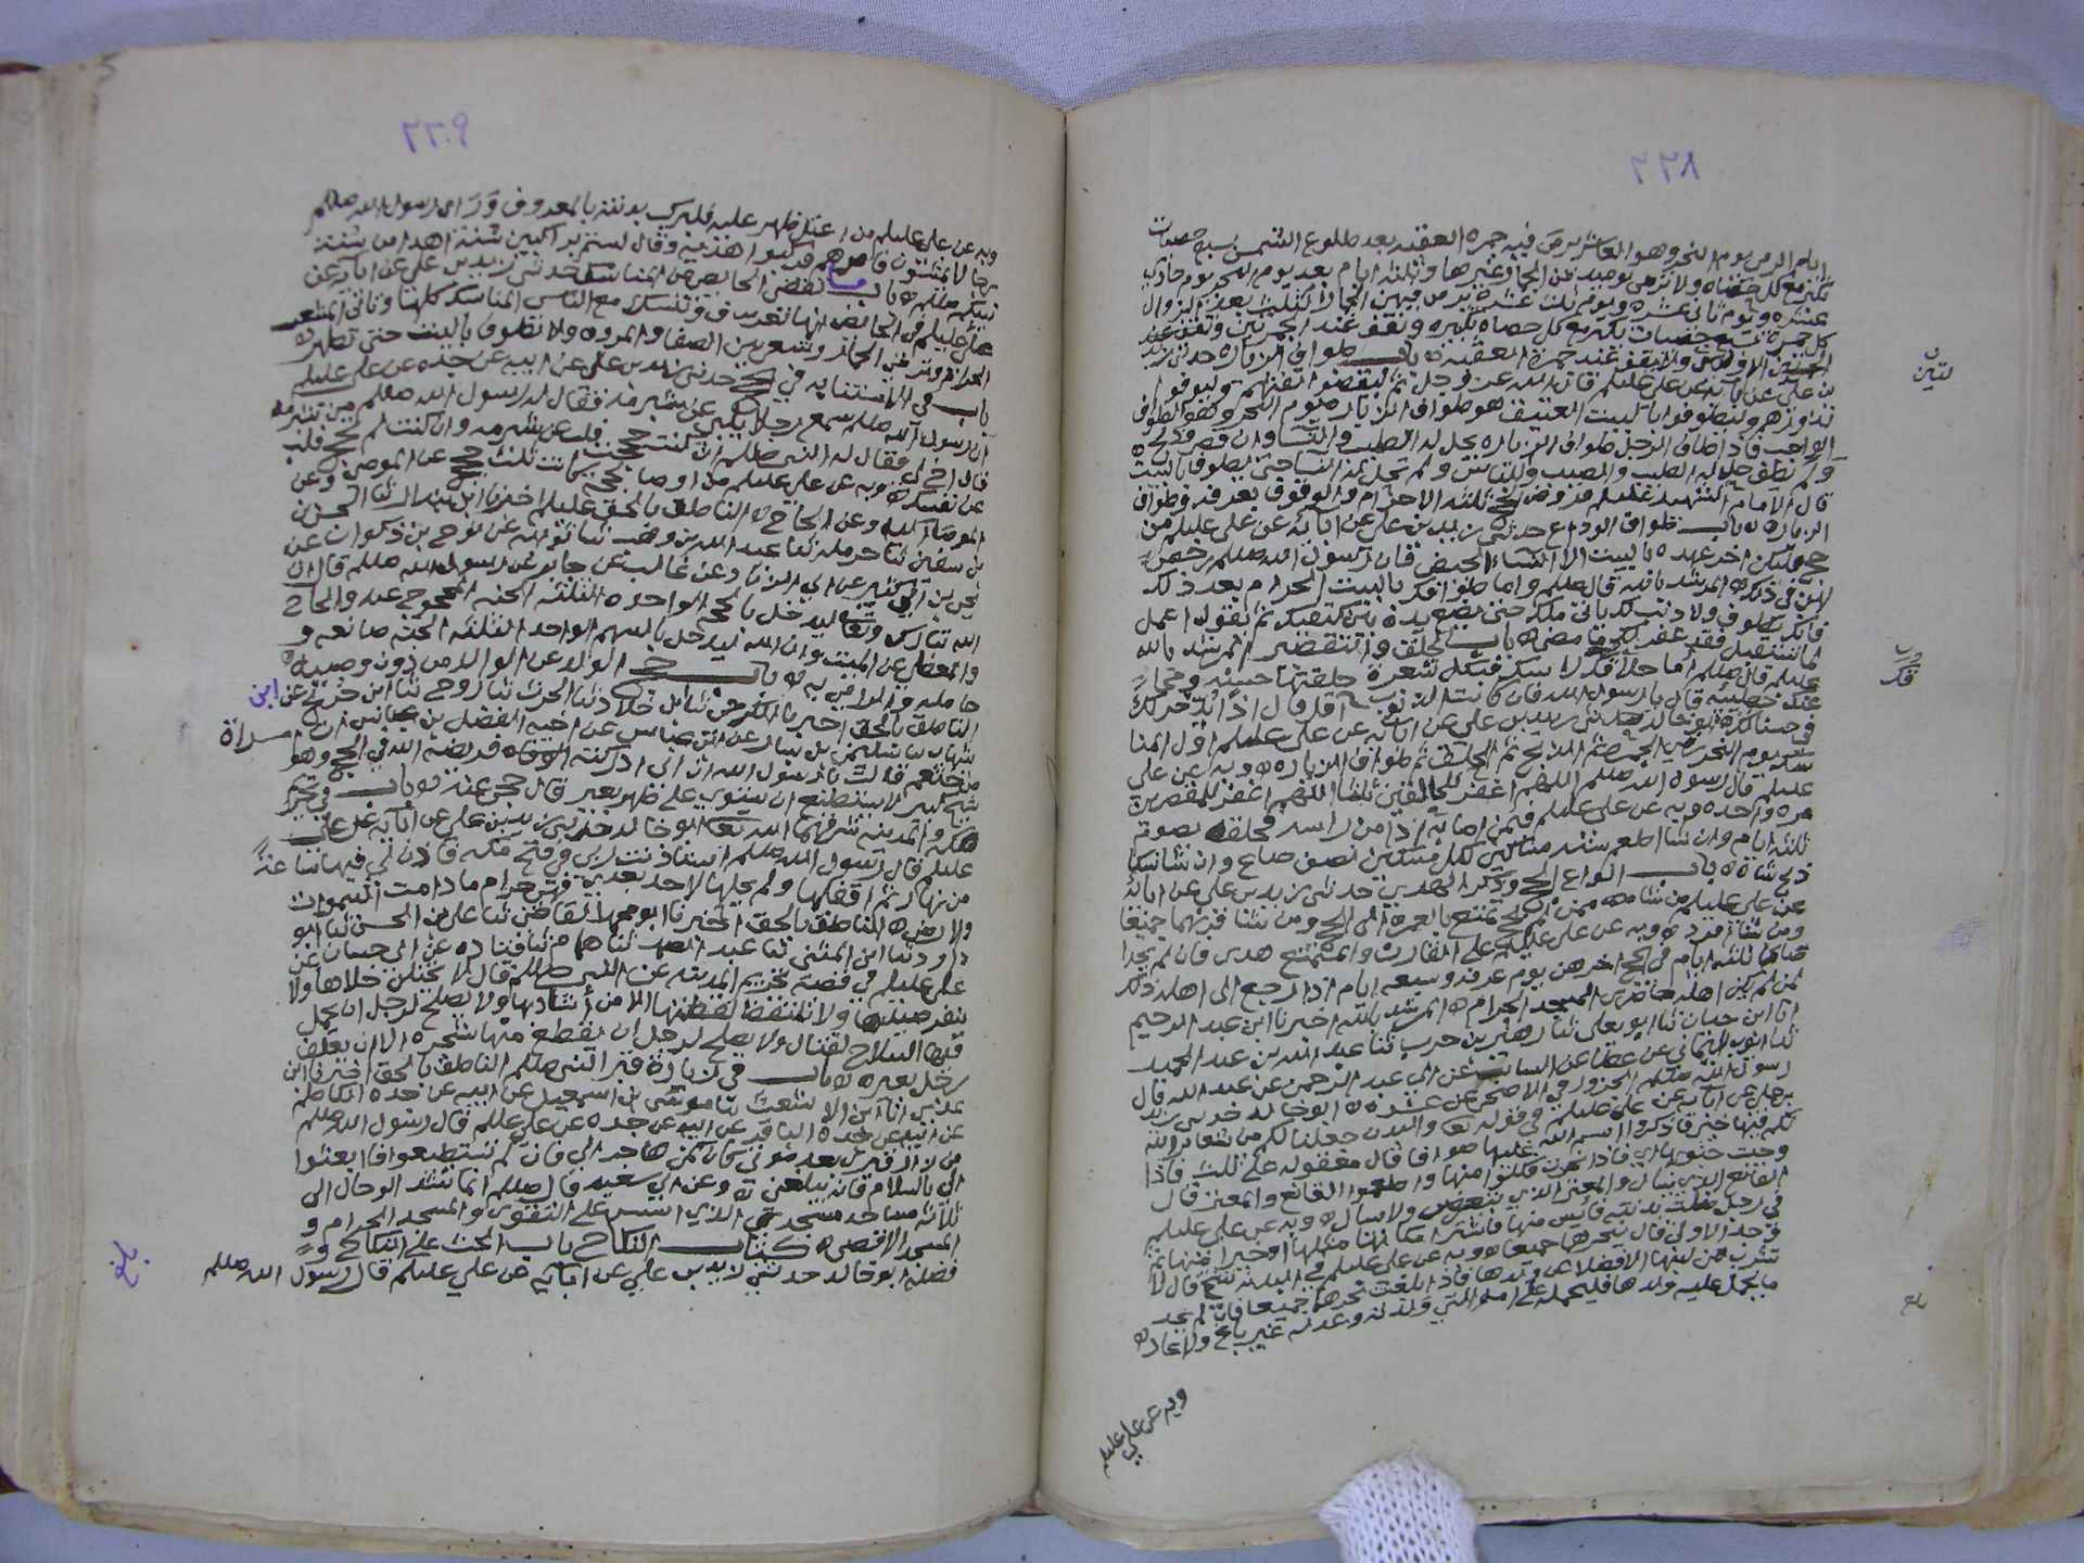 ايام الرمي يوم النحر وهو العاشر يرمى فيه جمرة العقبه بعد طلوع الشمس بسبع حصيات
يكبر مع كل حصاه ولا يرمى يوميد من الجمار غيرها وثلثه ايام بعد يوم النحر يوم حادي
عشره ويوم ثاني عشره ويوم ثلث عشره يرمى فيهن الجمار الثلث بعد الزوال
كل جمرة بسبع حصيات يكبر مع كل حصاه تكبيره ويقف عند الجمرتين
الاولتين ولا يقف عند جمرة العقبة ه باب طواف الزياره حدثني زيد
بن علي عن ابائه عن علي عليلم قال الله عز وجل ثم ليقضوا تفثهم وليوفوا
نذورهم وليطوفوا بالبيت العتيق هو طواف الزياره يوم النحر وهو الطواف
الواجب فاذا طاف الرجل طواف الزياره حل له الطيب والنسا وان قصر وذبح
ولم يطف حل له الطيب والصيد واللباس ولم تحل له النسا حتى يطوف بالبيت
قال الامام الشهيد عليلم فروض الحج ثلثه الاحرام والوقوف بعرفه وطواف
الزياره ه باب طواف الوداع حدثني زيد بن علي عن ابائه عن علي عليلم من
حج فليكن اخر عهده بالبيت الا النساء الحيض فان رسول الله صللم رخص
لهن في ذلك ه المرشد بالله قال صللم واما طوافك بالبيت الحرام بعد ذلك
فانك تطوف ولا ذنب لك ياتي ملك حتى يضع يده بين كتفيك ثم يقول اعمل
لما تستقبل فقد غفر لك ما مضى ه باب الحلق والتقصير المرشد بالله
عليلم قال صللم اما حلاقك لراسك فبكل شعرة حلقتها حسنه ومحا
عنك خطيئه قال يا رسول الله فان كانت الذنوب اقل قال اذا يدخر لك
في حسناتك ه ابو خالد حدثني زيد بن علي عن ابائه عن علي عليلم اول المنا
سك يوم النحر رمي الجمره ثم الذبح ثم الحلق ثم طواف الزياره ه وبه عن علي
عليلم قال رسول الله صللم اللهم اغفر للمحلقين ثلثا اللهم اغفر للمقصرين
مره واحده ه وبه عن علي عليلم فيمن اصابه اذا من راسه فحلقه يصوم
ثلثه ايام وان شا اطعم سته مساكين لكل مسكين نصف صاع وان شا نسك
ذبح شاة ه باب انواع الحج وذكر الهدي حدثني زيد بن علي عن ابائه
عن علي عليلم من شا ممن لم يحج تمتع بالعمرة الى الحج ومن شا قرنهما جميعا
ومن شا افرد ه وبه عن علي عليلم على القارن والمتمتع هدي فان لم يجدا
صاما ثلثه ايام في الحج اخرهن يوم عرفه وسبعه ايام اذا رجع الى اهله ذلك
لمن لم يكن اهله حاضري المسجد الحرام ه المرشد بالله اخبرنا ابن عبد الرحيم
انا ابن حيان ثنا ابو يعلى ثنا زهير بن حرب ثنا عبد الله بن عبد المجيد
ثنا ايوب اليماني عن عطا عن السائب عن ابي عبد الرحمن عن عبد الله قال
رسول الله صللم الجزور في الاضحى عن عشره ه ابو خالد حدثني زيد
بن علي عن ابائه عن علي عليلم في قوله تعا والبدن جعلناها لكم من شعائر الله
لكم فيها خير فاذكروا اسم الله عليها صواف قال معقوله على ثلث فاذا
وجبت جنوبها اي فاذا نحرت فكلوا منها واطعموا القانع والمعتر قال
القانع الذي يسال والمعتر الذي يتعرض ولا يسال ه وبه عن علي عليلم
في رجل ضلت بدنته فائس منها فاشترا مكانها مثلها او خيرا منها ثم
وجد الاولى قال ينحرها جميعا ه وبه عن علي عليلم في البدنه تنتج قال لا
تشرب من لبنها الا فضلا عن ولدها فاذا بلغت نحرهما جميعا فان لم يجد
ما يحمل عليه ولدها فليحمله على امه التي ولدته وعدله غير باغ ولا عاد ه
وبه عن علي عليلم
وبه عن علي عليلم من اعتل ظهر عليه فليركب بدنته بالمعروف وراى رسول الله صللم
رجالا يمشون فامرهم فركبوا هديه وقال لستم براكبين سنة اهدا من سنة
نبيكم صللم ه باب ما تقضي الحائض من المناسك حدثني زيد بن علي عن ابائه عن
علي عليلم في الحائض انها تعرف وتنسك مع الناس المناسك كلها وتاتي المشعر
الحرام وترمي الجمار وتسعى بين الصفا والمروه ولا تطوف بالبيت حتى تطهر ه
باب في الاستنابه في الحج حدثني زيد بن علي عن ابيه عن جده عن علي عليلم
ان رسول الله صللم سمع رجلا يلبي عن شبرمه فقال له رسول الله صللم من شبرمه
قال اخ لي فقال له النبي صللم ان كنت حججت فلب عن شبرمه وان كنت لم تحج فلب
عن نفسك ه وبه عن علي عليلم من اوصا بحجه كانت ثلث حجج عن الموصي وعن
الموصا اليه وعن الحاج ه الناطق بالحق عليلم اخبرنا ابن عبد الله ثنا الحسن
بن سفين ثنا حرمله ثنا عبد الله بن وهب ثنا ثوابه عن نوح بن ذكوان عن
يحيى بن ابي كثير عن ابي الزناد عن غالب عن جابر عن رسول الله صللم قال ان
الله تبارك وتعا ليدخل بالحجه الواحده الثلثه الجنه المحجوج عنه والحاج
والمنفذ عن الميت وان الله ليدخل بالسهم الواحد الثلثه الجنه صانعه و
حامله والرامي به ه باب حج الولد عن الوالد من دون وصيه ه
الناطق بالحق اخبرنا ثنا ابن خلاد ثنا الحرث ثنا روح ثنا ابن جريج عن ابن
شهاب ثنا سليمن بن يسار عن ابن عباس عن اخيه الفضل بن عباس ان امراة
من خثعم قالت يا رسول الله ان ابي ادركته فريضة الله في الحج وهو
شيخ كبير لا يستطيع ان يستوي على ظهر بعير قال حجي عنه ه باب في تحريم
مكه والمدينه شرفهما الله تعا ابو خالد حدثني زيد بن علي عن ابائه عن علي
عليلم قال رسول الله صللم استاذنت ربي في فتح مكه فاذن لي فيها ساعةً
من نهار ثم اقفلها ولم يحلها لاحد بعدي فهي حرام ما دامت السموات
والارض ه الناطق بالحق اخبرنا القاضي ثنا علي بن الحسن ثنا ابو
داود ثنا ابن المثنى ثنا عبد الصمد ثنا همام ثنا قتاده عن ابي حسان عن
علي عليلم في قصة تحريم المدينه عن النبي صللم قال لا يختلى خلاها ولا
ينفر صيدها ولا تلتقط لقطتها الا من أشاد بها ولا يصلح لرجل ان يحمل
فيها السلاح لقتال ولا يصلح لرجل ان يقطع منها شجره الا ان يعلف
رجل بعيره ه باب في زيارة قبر النبي صللم الناطق بالحق اخبرنا ابن
عدي انا ابن الاشعث ثنا موسى بن اسمعيل عن ابيه عن جده الكاظم
عن ابيه عن جده الباقر عن ابيه عن جده عن علي عليلم قال رسول الله صللم
من زار قبري بعد موتي كان كمن هاجر الي فان لم تستطيعوا فابعثوا
الي بالسلام فانه يبلغني ه وعن ابي سعيد قال صللم انما تشد الرحال الى
ثلاثه مساجد مسجدي الذي اسس على التقوى والمسجد الحرام و
المسجد الاقصى ه كتاب النكاح باب الحث على النكاح و
فضله ه ابو خالد حدثني زيد بن علي عن ابائه عن علي عليلم قال رسول الله صللم